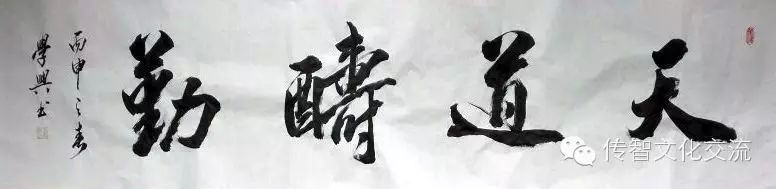 天道酬勤
丙申之春
學興書
传智文化交流